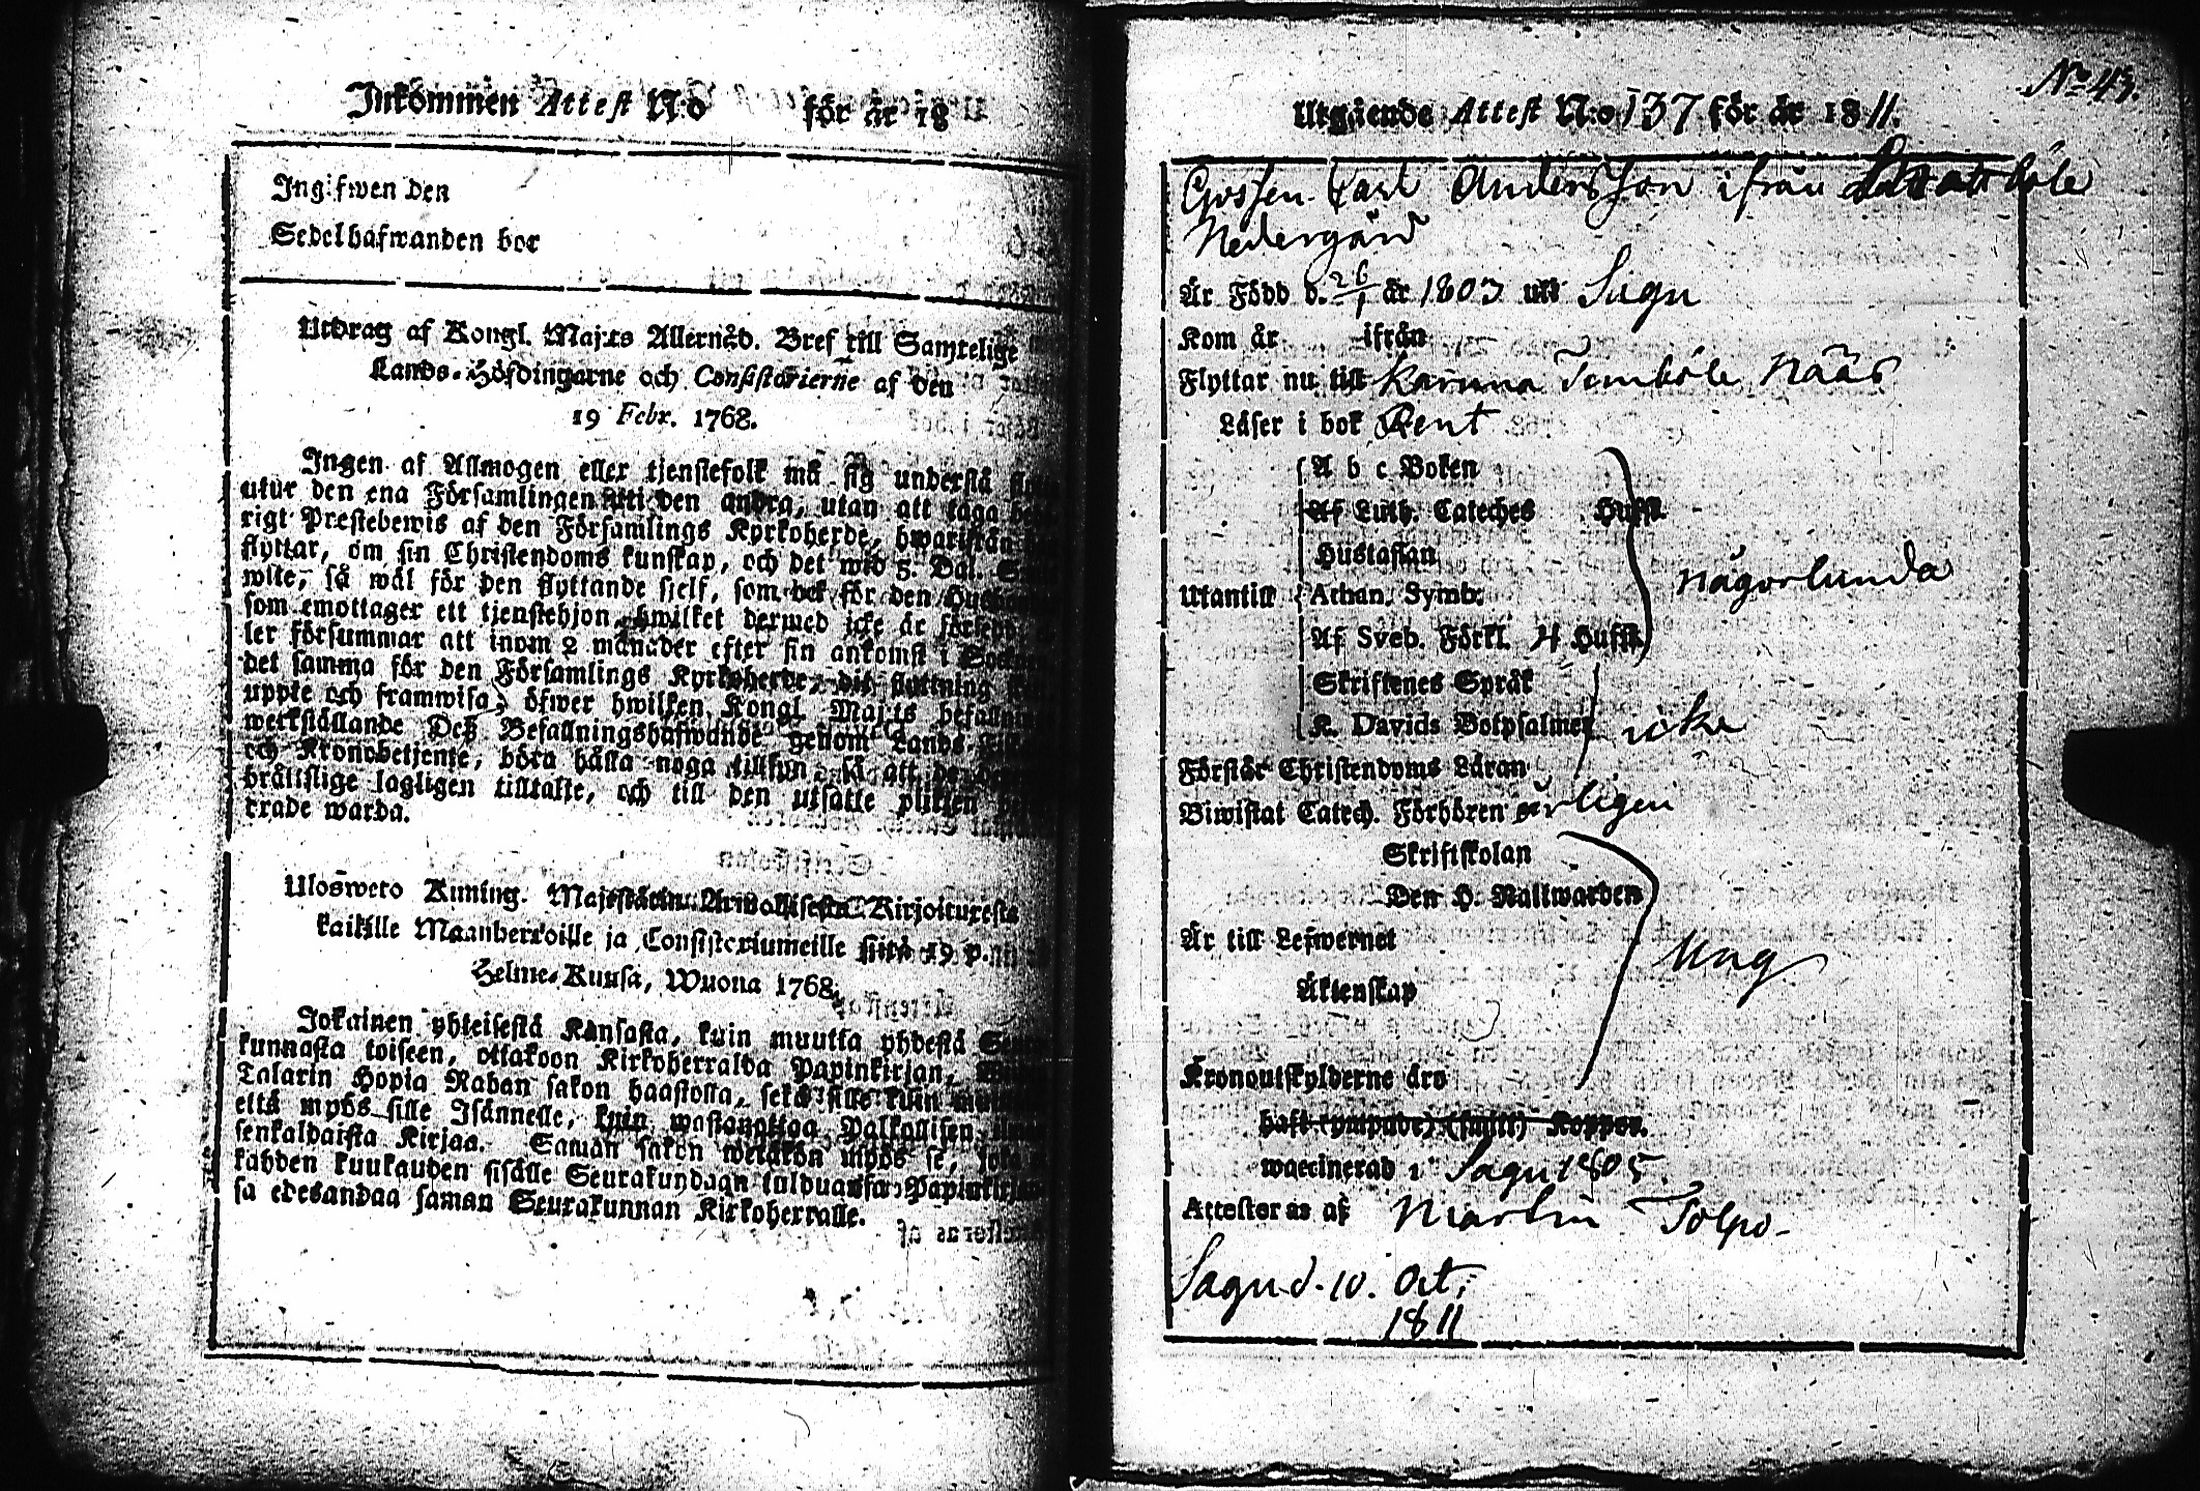 Inkommen Attest No för år 18
Ingifwen den
Sedelhafwanden bor
Utdrag af Kongl. Maj:ts Allernåd. Bref till Samtelige
Lands-Höfdingarne och Consistorierne af den
19 Febr. 1768.
Ingen af Allmogen eller tjenstefolk må sig understå
utur den ena Församlingen uti den andra, utan att taga
rigt Prestebewis af den Församlings Kyrkoherde, hwarifrån
flyttar, om sin Christendoms kunskap, och det wid 5. Dal.
wite, så wäl för den flyttande sjelf, som ock för den
som emottager ett tjenstehjon, hwilket dermed icke är
ler försummar att inom 2 månader efter sin ankomst i
det samma för den Församlings Kyrkoherde, dit flyttning
uppte och framwisa, öfwer hwilken Kongl. Maj:ts befallning
werkställande Deß Befallningshafwande genom Lands
och Kronobetjente, böra hålla noga tillsyn, så att de
brättslige lagligen tilltalte, och till den utsatte plikten
trade warda.
Ulosweto Kuning. Majestätin Armollisesta Kirjoituxesta
kaikille Maanherroille ja Consistoriumeille siitä 19 p.
Helme-Kuusa, Wuona 1768.
Jokainen yhteisestä Kansasta, kuin muutta yhdestä
kunnasta toiseen, ottakoon Kirkoherralda Papinkirjan,
Talarin Hopia Rahan sakon haastolla, sekä sille kuin
että myös sille Isännelle, kuin wastanottaa Palkollisen
senkaldaista Kirjaa. Saman sakon wetäkön myös se,
kahden kuukauden sisälle Seurakundaan tulduansa Papinkirjan
sa edesandaa saman Seurakunnan Kirkoherralle.
No 43.
Utgående Attest N:o 137 för år 1811.
Gossen Carl Andersson ifrån
Nedergård
Är Född d. 26/1 år 1803 uti Sagu
Kom år ifrån
Flyttar nu till Karuna Tembôle Nääs
Läser i bok Rent
A b c Boken
Af Luth. Cateches Hufst.
Hustaflan
Utantill Athan. Symb. någorlunda
Af Sveb. Förkl. 4 Hufst.
Skriftenes Språk
K. Davids Botpsalmer icke
Förstår Christendoms Läran
Biwistat Catech. Förhören årligen
Skriftskolan
Den H. Nattwarden
Är till Lefwernet Ung
Äktenskap
Kronoutskylderne äro
haft (ympade) (sjelf) Koppor.
waccinerad i Sagu 1805.
Attesteras af Martin Tolpo
Sagu d. 10. Oct.
1811